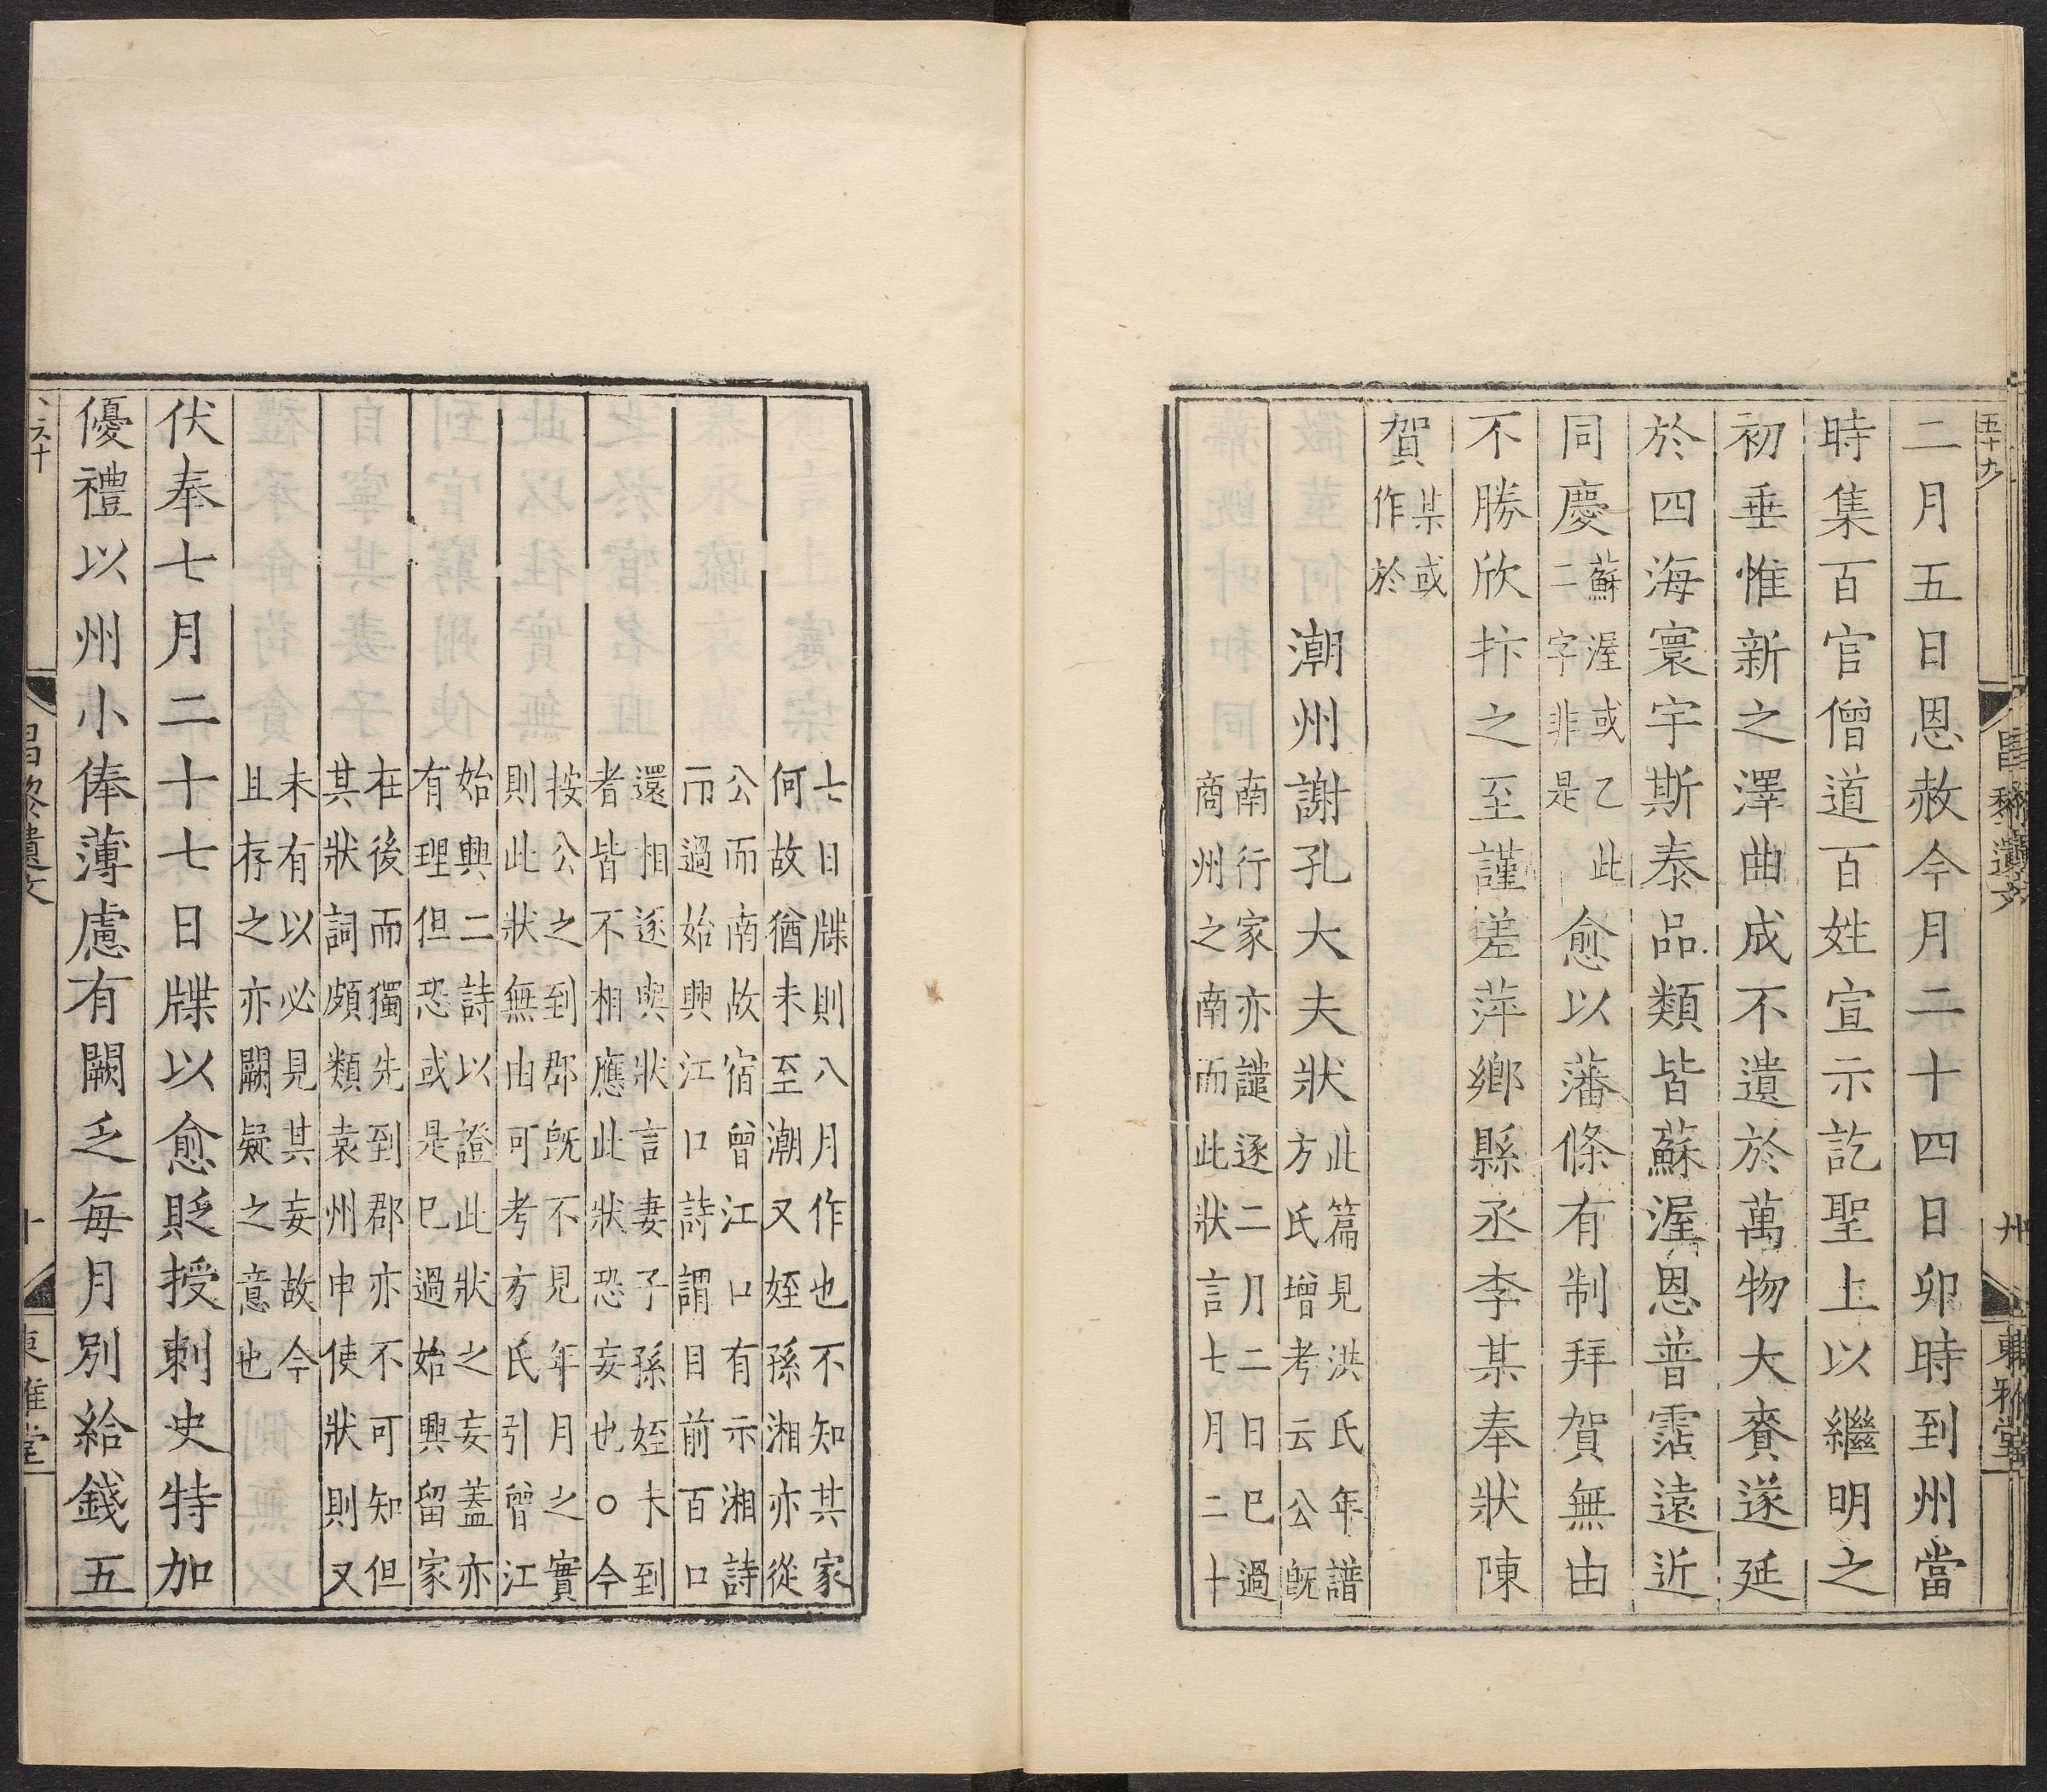 五十九
昌黎遺文
卅
東雅堂
二月五日恩赦今月二十四日卯時到州當
時集百官僧道百姓宣示訖聖上以繼明之
初垂惟新之澤曲成不遺於萬物大賚遂延
於四海寰宇斯泰品類皆蘇渥恩普霑遠近
同慶蘇渥或乙此二字非是愈以藩條有制拜賀無由
不勝欣抃之至謹差萍鄉縣丞李某奉狀陳
賀某或作於
潮州謝孔大夫狀此篇見洪氏年譜方氏增考云公既
南行家亦譴逐二月二日已過
商州之南而此狀言七月二十
七日牒則八月作也不知其家
何故猶未至潮又姪孫湘亦從
公而南故宿曾江口有示湘詩
而過始興江口詩謂目前百口
還相逐與狀言妻子孫姪未到
者皆不相應此狀恐妄也○今
按公之到郡既不見年月之實
則此狀無由可考方氏引曾江
始興二詩以證此狀之妄蓋亦
有理但恐或是已過始興留家
在後而獨先到郡亦不可知但
其狀詞頗類袁州申使狀則又
未有以必見其妄故今
且存之亦闕疑之意也
伏奉七月二十七日牒以愈貶授刺史特加
優禮以州小俸薄慮有闕乏每月別給錢五
六十
昌黎遺文
十
東雅堂